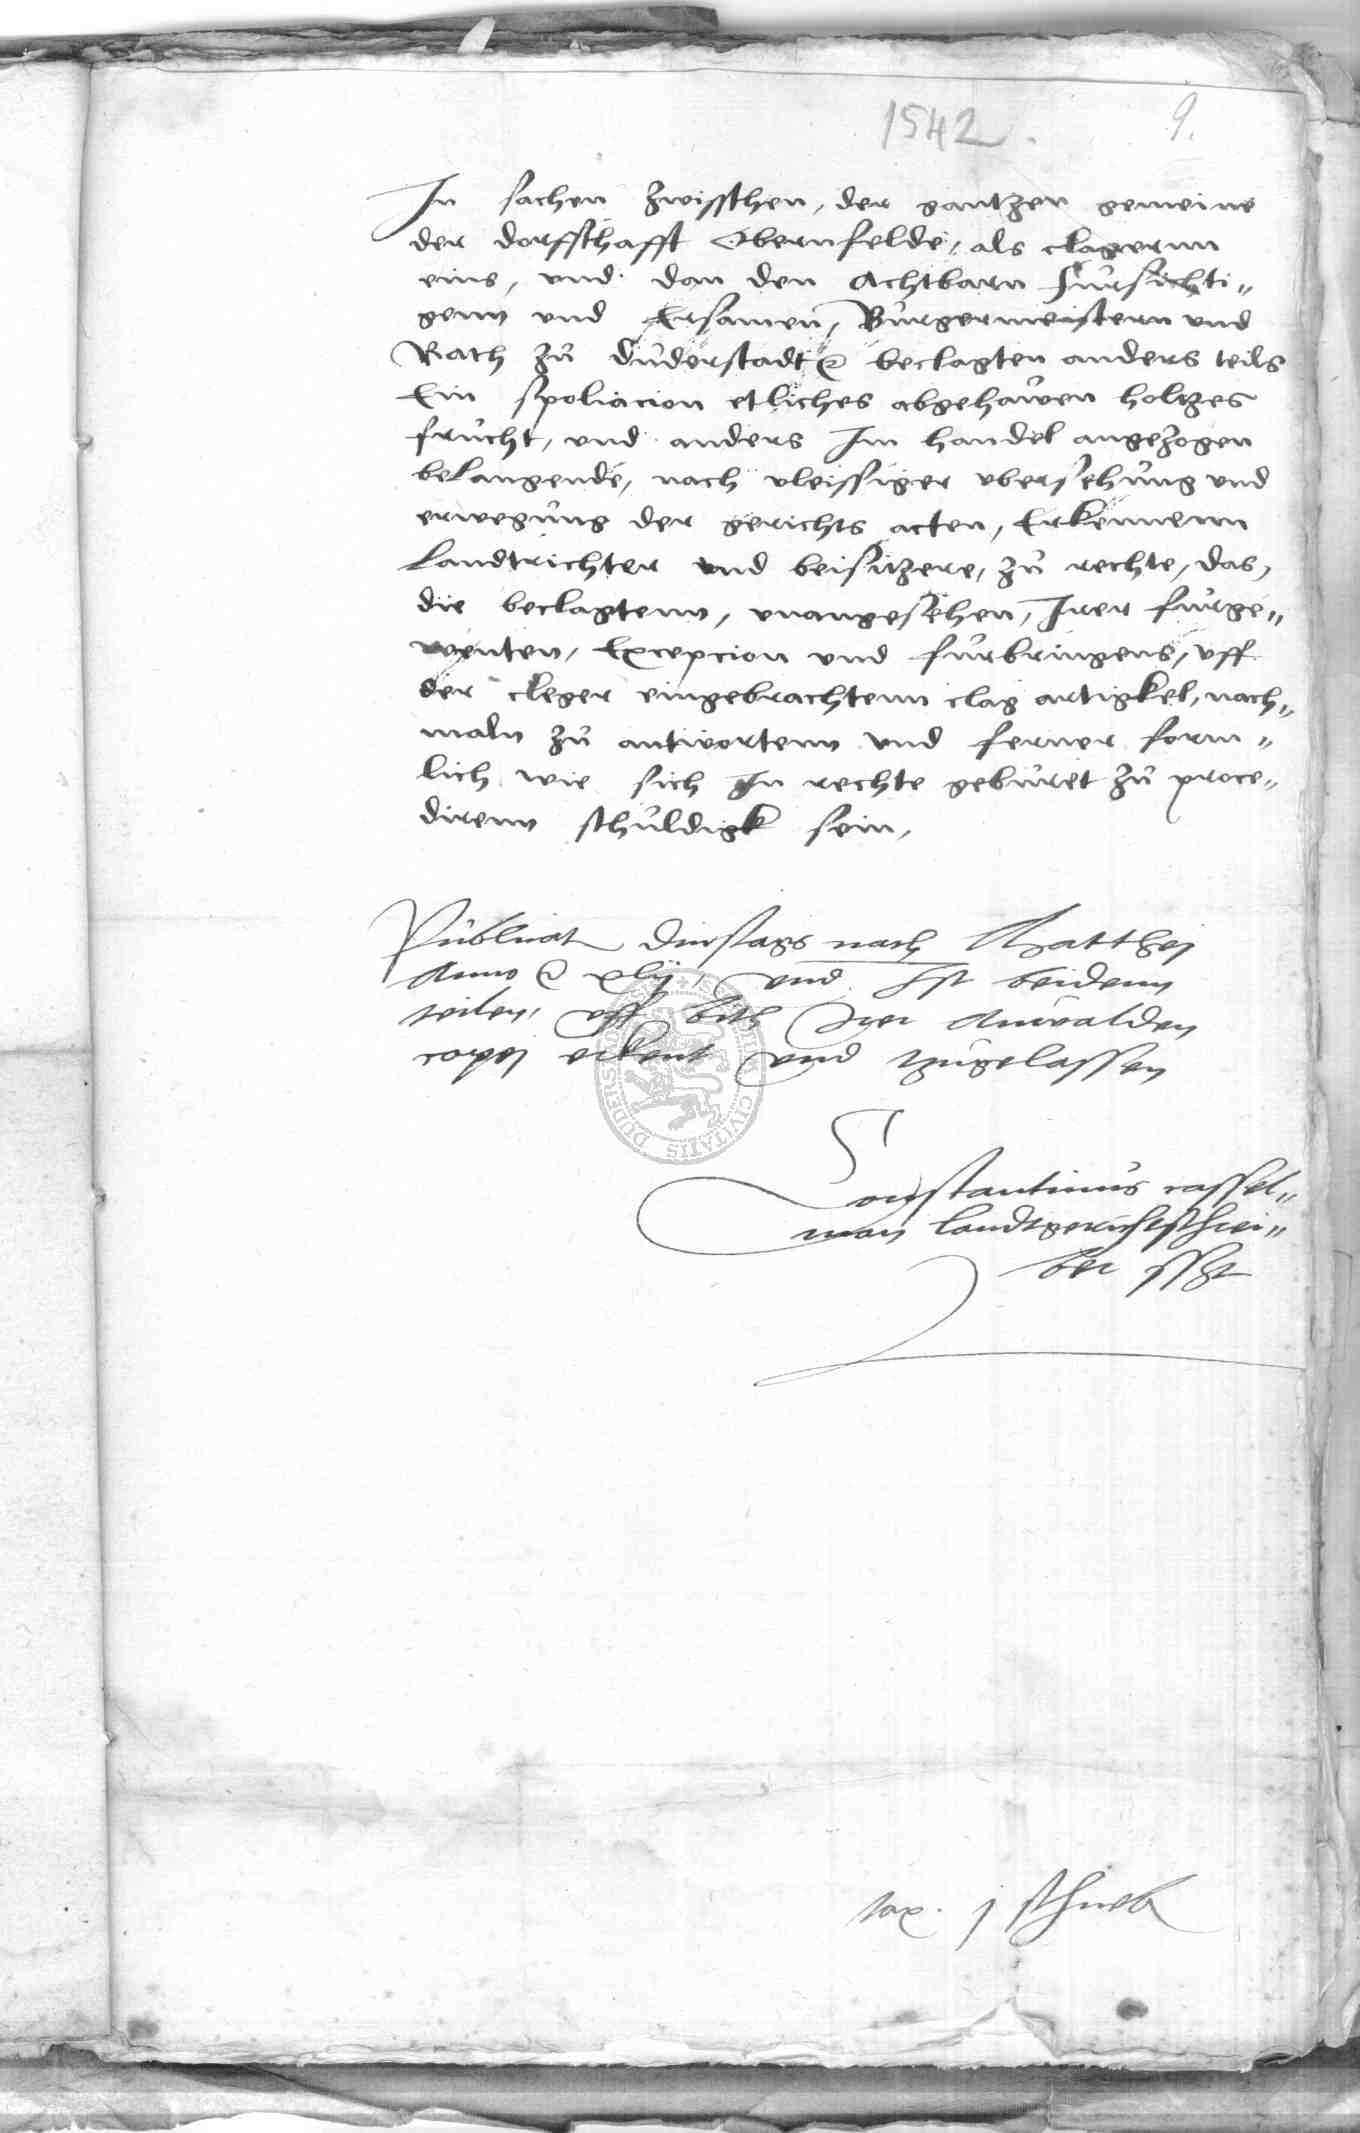 1542. 9.
In sachen zwisschen, der gantzen gemeine
der dorffschafft Obernfelde, als clagernn
eins, vnd dan den Achtbarn fursichti„
genn vnd Ersamen, Burgermeistern vnd
Rath zu Duderstadt beclagten anders teils
Ein spoliacion etliches abgehawen holtzes
frucht, vnd anders Im handel angezogen
belangende, nach vleissiger vbersehung vnd
erwegung der gerichts acten, Erkennenn
Landtrichter vnd beisitzere, zu rechte, das,
die beclagtenn, vnangesehen, Irer furge„
wenten, Excepcion vnd furbringens, vff
der cleger eingebrachtenn clag artigkel, nach„
maln zu antwortenn vnd ferner form„
lich wie sich In rechte geburet zu proce„
direnn schuldigk sein,
Publicat dinstags nach Matthej
Anno xlij, vnd Ist beidenn
teilen, vff bith Irer Anwalden
copej erkent vnd zugelassen
Constantinus cassel„
man landtgerichtsschrei„
ber sszt
tax. j schneb
SIGILLUM CIVITATIS DUDERSTADENSIS